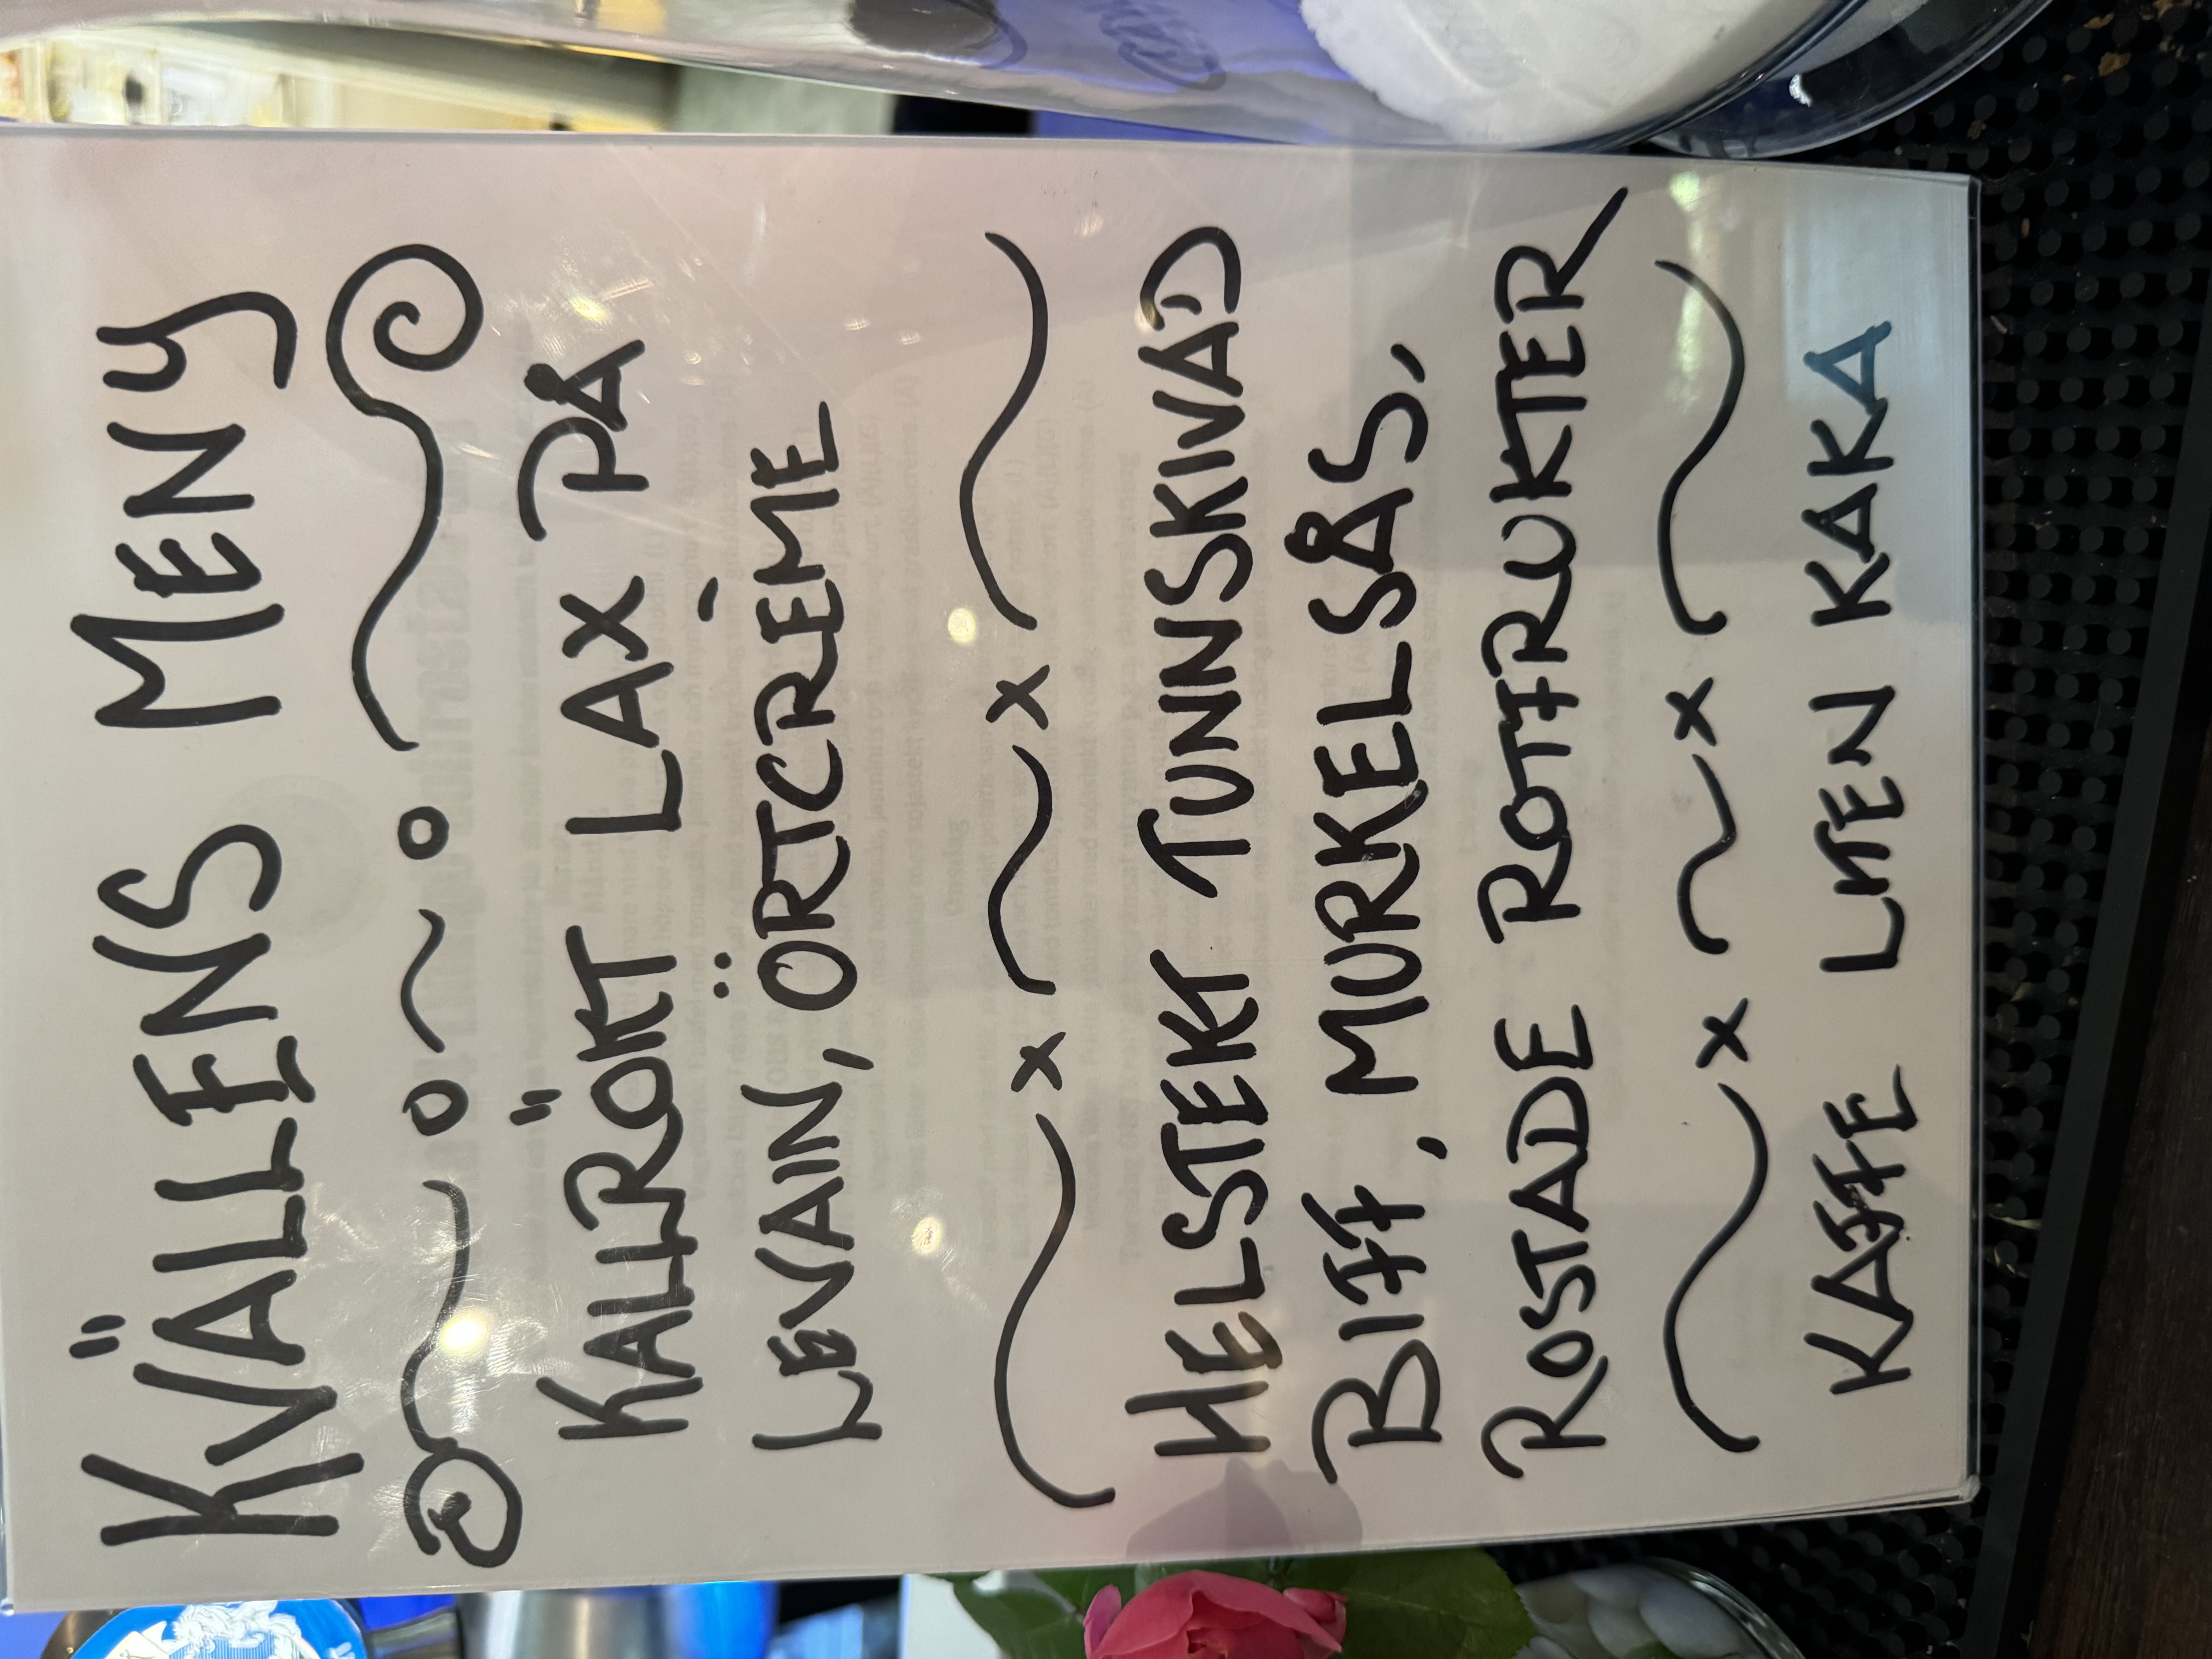 KVÄLLENS MENY
KALLRÖKT LAX PÅ
LEVAIN, ÖRTCRÉME
HELSTEKT TUNNSKIVAD
BIFF, MURKELSÅS,
ROSTADE ROTFRUKTER
KAFFE LITEN KAKA